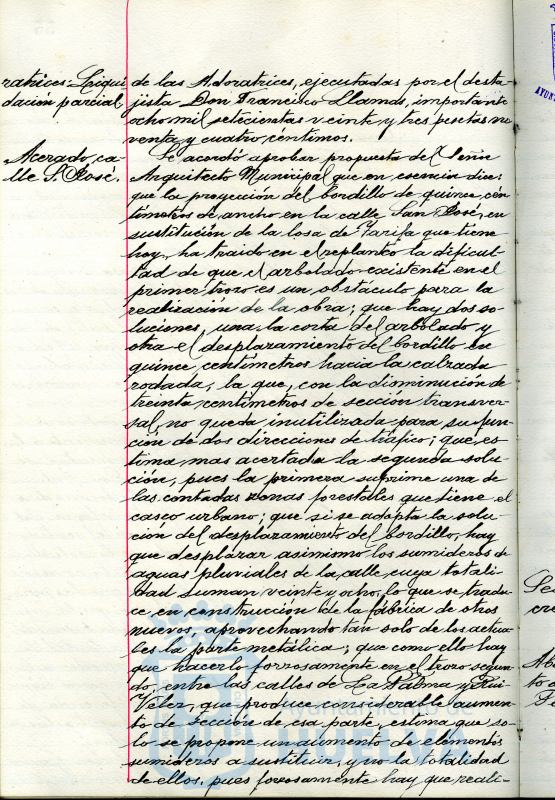 ratrices: Liqui
dacion parcial
Acerado, ca-
lle S. José.
de las Adoratrices, ejecutadas por el desta-
jista Don Francisco Llamas, importante
ocho mil setecientas veinte y tres pesetas no
venta y cuatro céntimos.
Se acordó aprobar propuesta del Señor
Arquitecto Municipal que en esencia dice:
que la proyección del bordillo de quince cén
tímetros de ancho en la calle San José, en
sustitución de la losa de Tarifa que tiene
hoy, ha traido en el replanteo la dificul-
tad de que el arbolado existente en el
primer trozo es un obstáculo para la
realización de la obra; que hay dos so-
luciones, una la corta del arbolado y
otra el desplazamiento del bordillo en
quince centímetros hacia la calzada
rodada, la que, con la disminución de
treinta centímetros de sección transver-
sal, no queda inutilizada para su fun-
ción de dos direcciones de tráfico; que, es-
tima, mas acertada la segunda solu-
ción, pues la primera suprime una de
las contadas zonas forestales que tiene el
casco urbano; que si se adopta la solu-
ción del desplazamiento del bordillo, hay
que desplazar asimismo los sumideros de
aguas pluviales de la calle cuya totali-
dad suman veinte y ocho, lo que se tradu-
ce en construcción de la fábrica de otros
nuevos, aprovechando tan solo de los actua-
les la parte metálica; que como ello hay
que hacerlo forzosamente en el trozo segun-
do, entre las calles de La Palma y Rui
Velez, que produce considerable aumen-
to de sección de esa parte, estima que so-
lo se propone un aumento de elementos
sumideros a sustituir, y no la totalidad
de ellos, pues forzosamente hay que reali-
Ayuntamiento de
HUELVA